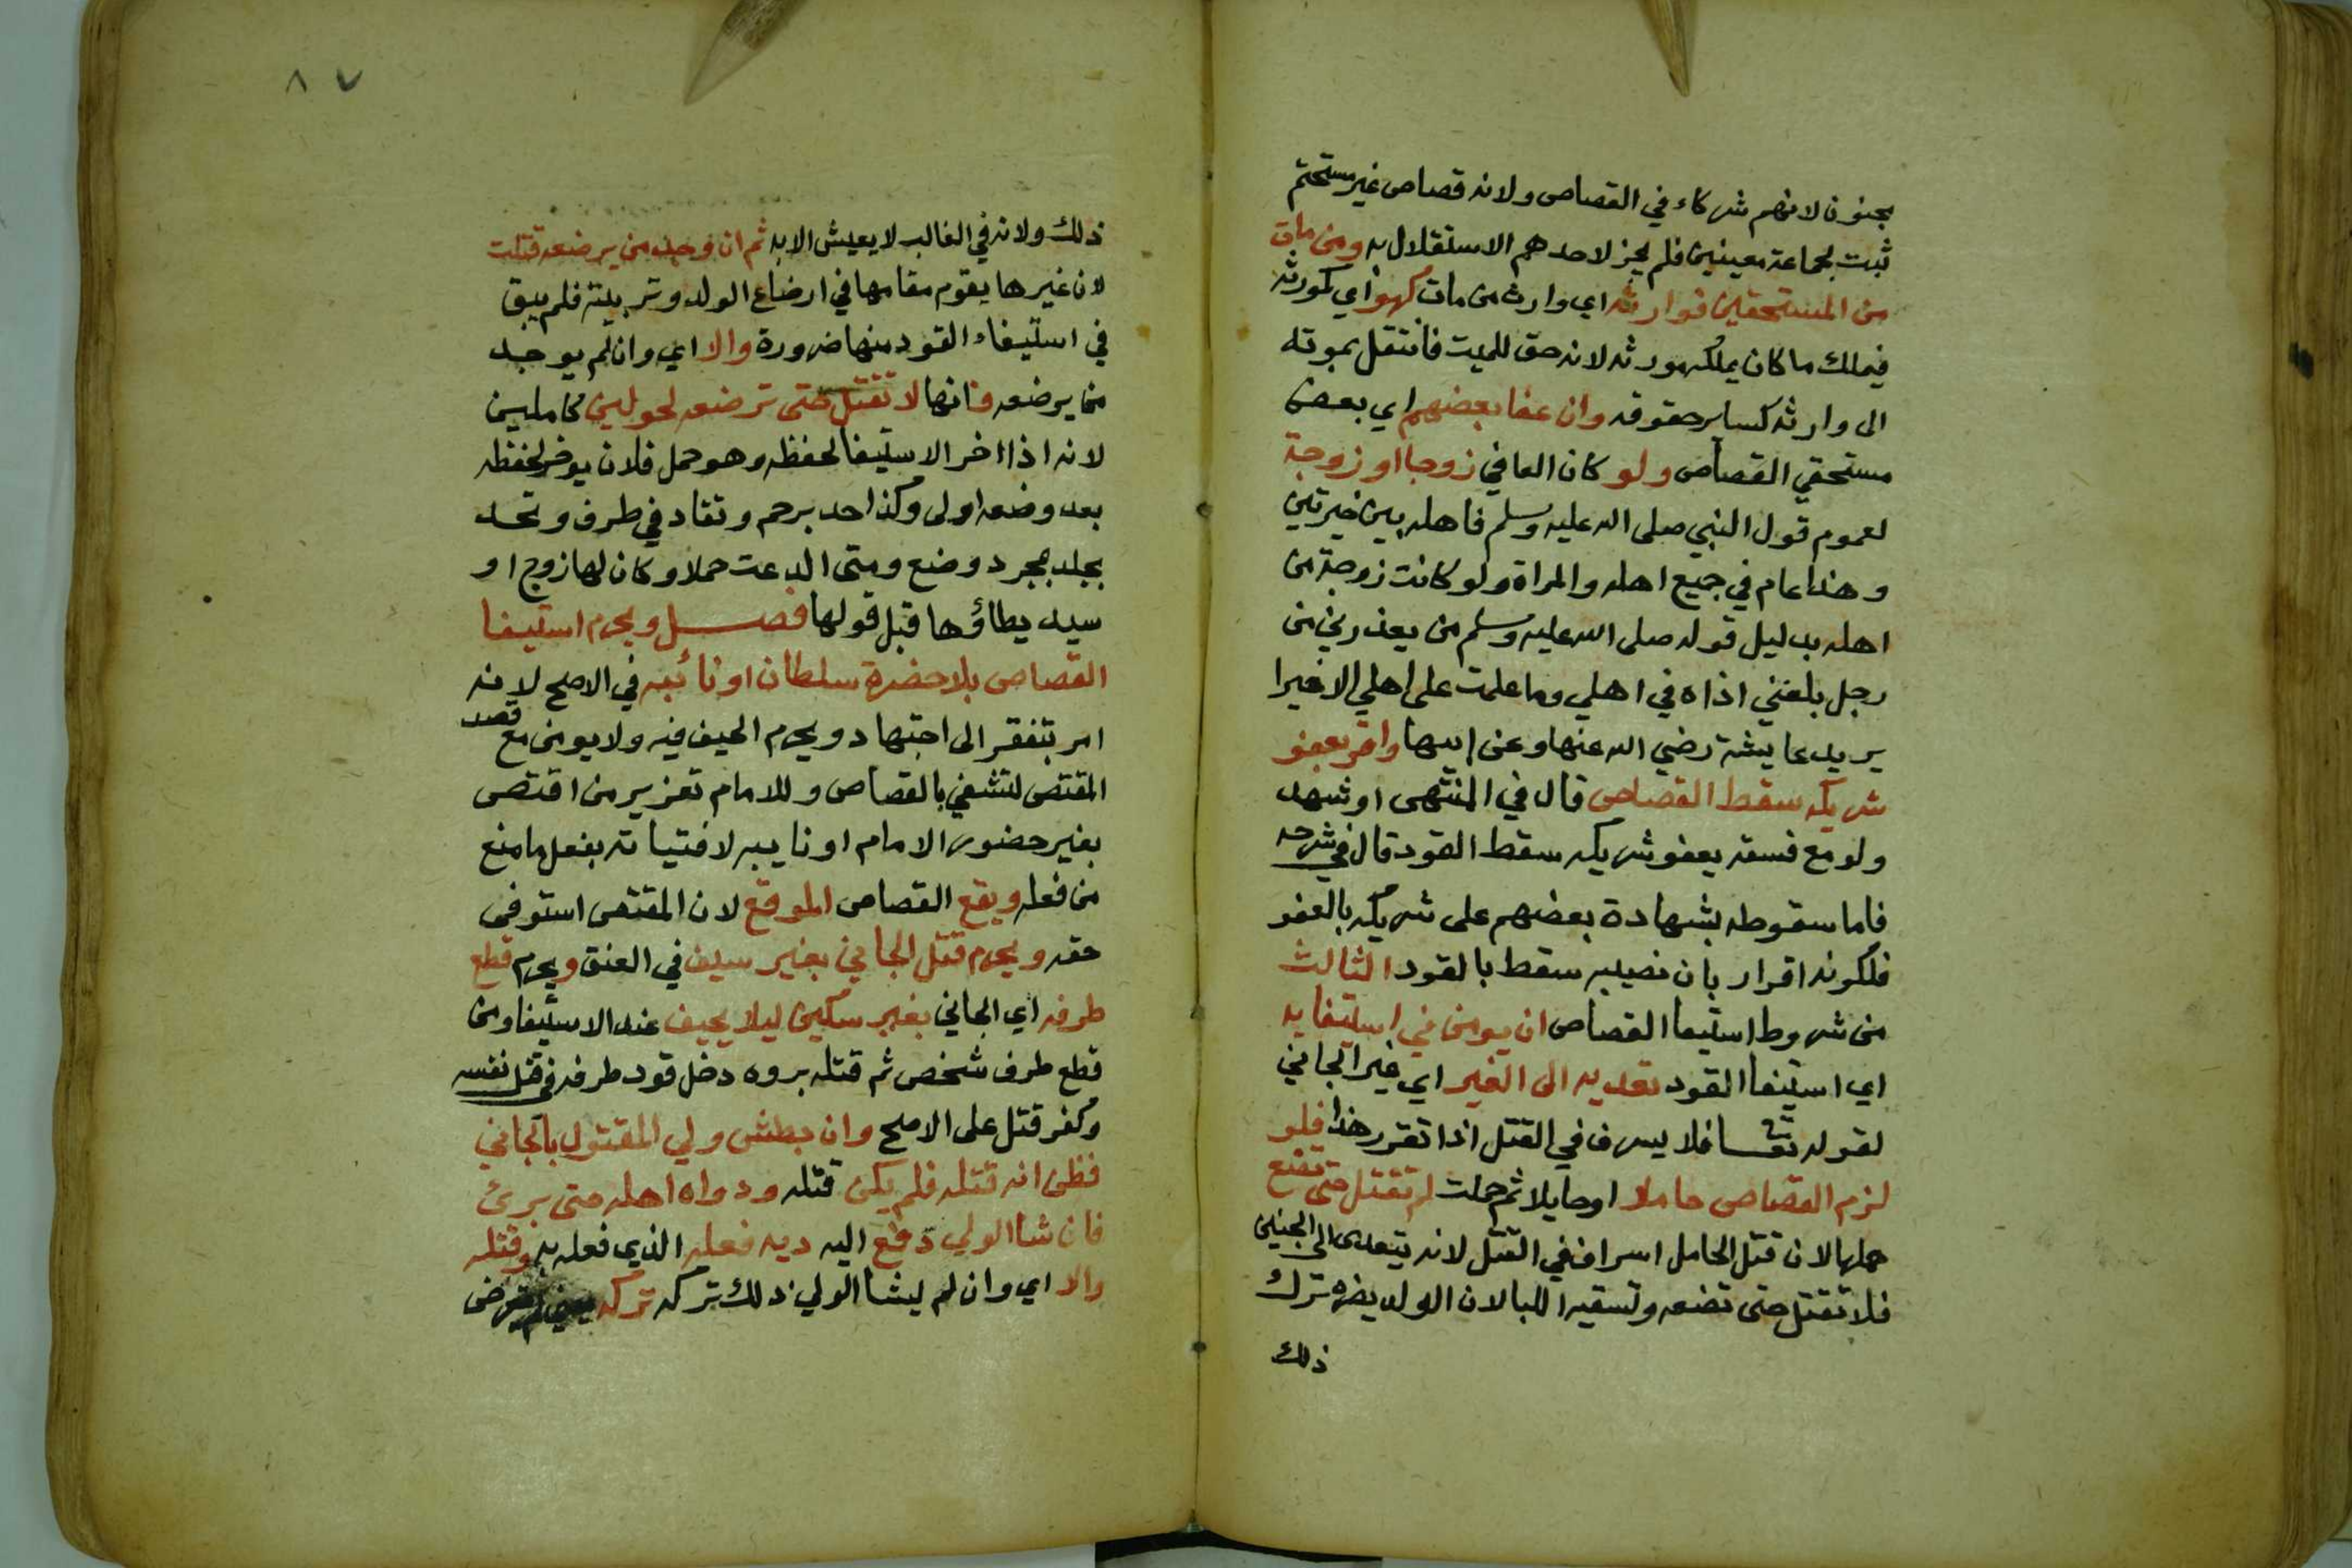 بجنون لانهم شركاء في القصاص ولانه قصاص غير متحتم
ثبت لجماعة معينين فلم يجز لاحدهم الاستقلال به ومن مات
من المستحقين فوارثه اي وارث من مات كهو اي كمورثه
فيملك ما كان يملكه مورثه لانه حق للميت فانتقل بموته
الى وارثه كساير حقوقه وان عفا بعضهم اي بعض
مستحقي القصاص ولو كان العافي زوجا او زوجة
لعموم قول النبي صلى الله عليه وسلم فاهله بين خيرتين
وهذا عام في جميع اهله والمراة ولو كانت زوجة من
اهله بدليل قوله صلى الله عليه وسلم من يعذرني من
رجل بلغني اذاه في اهلي وما علمت على اهلي الا خيرا
يريد عايشة رضي الله عنها وعن ابيها واقر بعفو
شريكه سقط القصاص قال في المنتهى او شهد
ولو مع فسقه بعفو شريكه سقط القود قال في شرحه
فاما سقوطه بشهادة بعضهم على شريكه بالعفو
فلكونه اقرار بان نصيبه سقط بالقود الثالث
من شروط استيفا القصاص ان يومن في استيفايه
اي استيفا القود تعديه الى الغير اي غير الجاني
لقوله تعالى فلا يسرف في القتل اذا تقرر هذا فلو
لزم القصاص حاملا او حايلا ثم حملت لم تقتل حتى تضع
حملها لان قتل الحامل اسراف في القتل لانه يتعدى الى الجنين
فلا تقتل حتى تضعه وتسقيه اللبا لان الولد يضره ترك
ذلك
٨٧
ذلك ولانه في الغالب لا يعيش الا به ثم ان وجد من يرضعه قتلت
لان غيرها يقوم مقامها في ارضاع الولد وتربيته فلم يبق
في استيفاء القود منها ضرورة والا اي وان لم يوجد
من يرضعه فانها لا تقتل حتى ترضعه لحولين كاملين
لانه اذا اخر الاستيفا لحفظه وهو حمل فلان يوخر لحفظه
بعد وضعه اولى وكذا حد برجم وتقاد في طرف وتحد
بجلد بمجرد وضع ومتى ادعت حملا وكان لها زوج او
سيد يطاؤها قبل قولها فصل ويحرم استيفا
القصاص بلا حضرة سلطان او نائبه في الاصح لانه
امر يتفقر الى اجتهاد ويحرم الحيف فيه ولا يومن مع قصد
المقتص لتشفي بالقصاص وللامام تعزير من اقتص
بغير حضور الامام او نايبه لافتياته بفعل ما منع
من فعله ويقع القصاص الموقع لان المقتص استوفى
حقه ويحرم قتل الجاني بغير سيف في العنق ويحرم قطع
طرفه اي الجاني بغير سكين ليلا يحيف عند الاستيفا ومن
قطع طرف شخص ثم قتله بروه دخل قود طرفه في قتل نفسه
وكفر قتل على الاصح وان بطش ولي المقتول بالجاني
فظن انه قتله فلم يكن قتله ودواه اهله حتى برئ
فان شا الولي دفع اليه ديه فعله الذي فعله به وقتله
والا اي وان لم يشا الولي ذلك تركه تركه